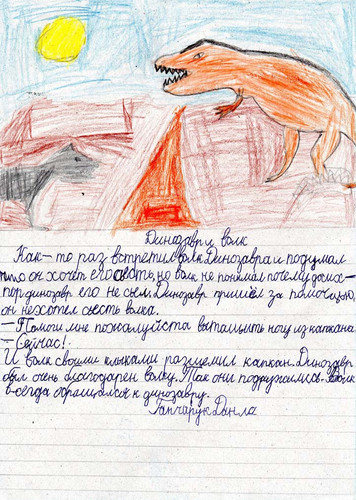 Динозавр и волк
Как-то раз встретил волк Динозавра и подумал
что он хочет его сьесть, но волк не понимал почему до сих-
пор динозавр его не сьел. Динозавр пришёл за помощью,
он нехотел сьесть волка.
-Помоги мне пожалуйста вытащить ногу из капкана.
-Сейчас!
И волк своими клыками разцепил капкан. Динозавр
был очень благодарен волку. Так они подружились. Волк
всегда обращался к динозавру.
Гапчарук Данила